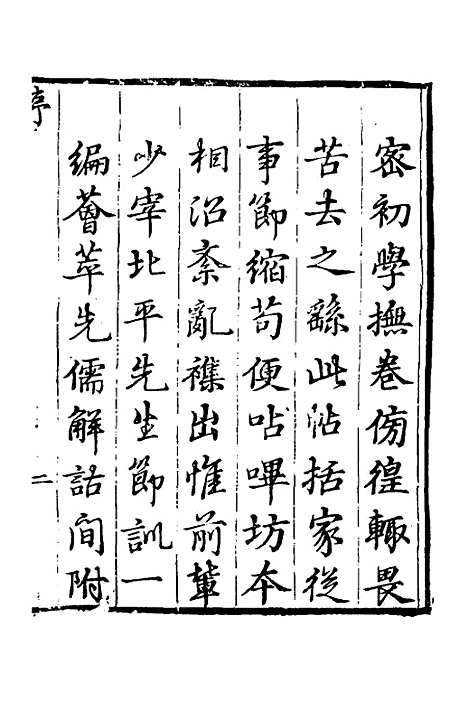 密初學撫卷徬徨輙畏
苦去之繇此帖括家從
事節縮苟便呫嗶坊本
相沿紊亂襍出惟前輩
少宰北平先生節訓一
編薈萃先儒解詁间附
序
二